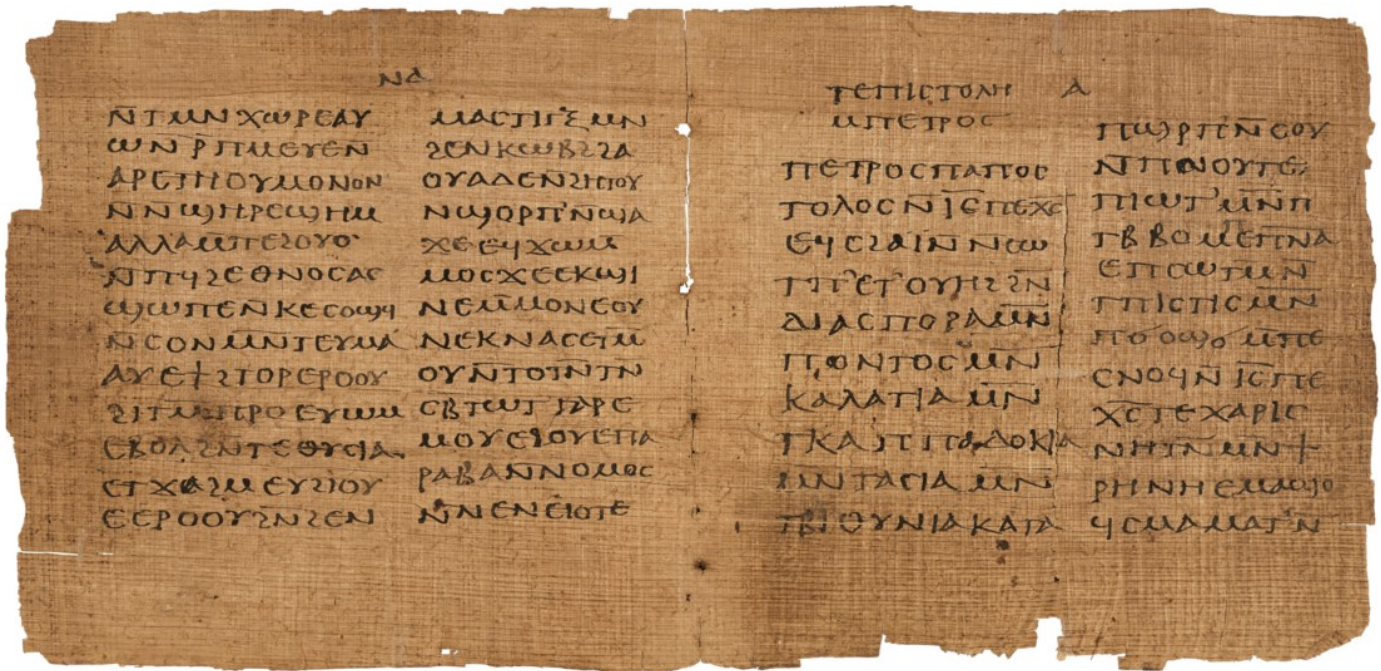 ⲛⲁ
ⲛ̄ⲧⲙⲛⲭⲱⲣⲉⲁⲩ
ⲱⲛ̄ⲣ̄ⲡⲙⲉⲩⲉⲛ̄
ⲁⲣⲉⲧⲏⲟⲩⲙⲟⲛⲟⲛ
ⲛ̄ⲛϣⲏⲣⲉϣⲏⲙ
ⲁⲗⲗⲁⲙ̄ⲡⲉϩⲟⲩⲟ
ⲛ̄ⲡϥϩⲉⲑⲛⲟⲥⲁⲥ
ϣⲱⲡⲉⲛ̄ⲕⲉⲥⲟϣϥ
ⲛ̄ⲥⲟⲛⲙⲛ̄ⲧⲉⲩⲙⲁ
ⲁⲩⲉϯϩⲧⲟⲣⲉⲣⲟⲟⲩ
ϩⲓⲧⲙ̄ⲡⲣⲟⲉⲩⲱⲙ
ⲉⲃⲟⲗϩⲛ̄ⲧⲉⲑⲩⲥⲓⲁ
ⲉⲧϫⲁϩⲙⲉⲩϩⲓⲟⲩ
ⲉⲉⲣⲟⲟⲩϩⲛ̄ϩⲉⲛ
ⲙⲁⲥⲧⲓⲅⲝⲙⲛ
ϩⲉⲛⲕⲱⲃϩϩⲁ
ⲟⲩⲁⲇⲉⲛ̄ϩⲏⲧⲟⲩ
ⲛϣⲟⲣⲡ'ⲛ̄ϣⲁ
ϫⲉⲉϥϫⲱⲙ̄
ⲙⲟⲥϫⲉⲉⲕϣⲓ
ⲛⲉⲙ̄ⲙⲟⲛⲉⲟⲩ
ⲛⲉⲕⲛⲁⲥⲉⲧⲙ̄
ⲟⲩⲛ̄ⲧⲟⲧⲛ̄ⲧⲛ̄
ⲥⲃⲧⲱⲧ'ⲅⲁⲣⲉ
ⲙⲟⲩⲉϩⲟⲩⲉⲡⲁ
ⲣⲁⲃⲁⲛⲛⲟⲙⲟⲥ
ⲛ̄ⲛⲉⲛⲉⲓⲟⲧⲉ
ⲧⲉⲡⲓⲥⲧⲟⲗⲏ ⲁ
ⲙⲡⲉⲧⲣⲟⲥ
ⲡⲉⲧⲣⲟⲥⲡⲁⲡⲟⲥ
ⲧⲟⲗⲟⲥⲛ̄ⲓ̄ⲥ̄ⲡⲉⲭ̄ⲥ̄
ⲉϥⲥϩⲁⲓ̈ⲛ̄ⲛⲥⲱ
ⲧⲡ'ⲉⲧ'ⲟⲩⲏϩϩⲛ̄
ⲇⲓⲁⲥⲡⲟⲣⲁⲙⲛ̄
ⲡⲟⲛⲧⲟⲥⲙⲛ̄
ⲕⲁⲗⲁⲧⲓⲁⲙⲛ̄
ⲧⲕⲁⲡⲡⲁⲇⲟⲕⲓⲁ
ⲙⲛ̄ⲧⲁⲥⲓⲁⲙⲛ̄
ⲧⲃⲓⲑⲩⲛⲓⲁⲕⲁⲧⲁ
ⲡϣⲣⲡ'ⲛ̄ⲥⲟⲩ
ⲛ̄ⲡⲛⲟⲩⲧⲉ
ⲡⲓⲱⲧ'ⲙ̄ⲛ̄ⲡ
ⲧⲃ̄ⲃⲟⲙⲉⲡ̄ⲛ̄ⲁ̄
ⲉⲡⲥⲱⲧⲙ̄ⲛ̄
ⲧⲡⲓⲥⲧⲓⲥⲙⲛ̄
ⲡϭⲟϣϭ'ⲙ̄ⲡⲉ
ⲥⲛⲟϥⲛ̄ⲓ̄ⲥ̄ⲡⲉ
ⲭ̄ⲥ̄ⲧⲉⲭⲁⲣⲓⲥ
ⲛⲏⲧⲛ̄ⲙⲛ̄ϯ
ⲣⲏⲛⲏⲉⲙⲁϣⲟ
ϥⲥⲙⲁⲙⲁⲧ'ⲛ̄